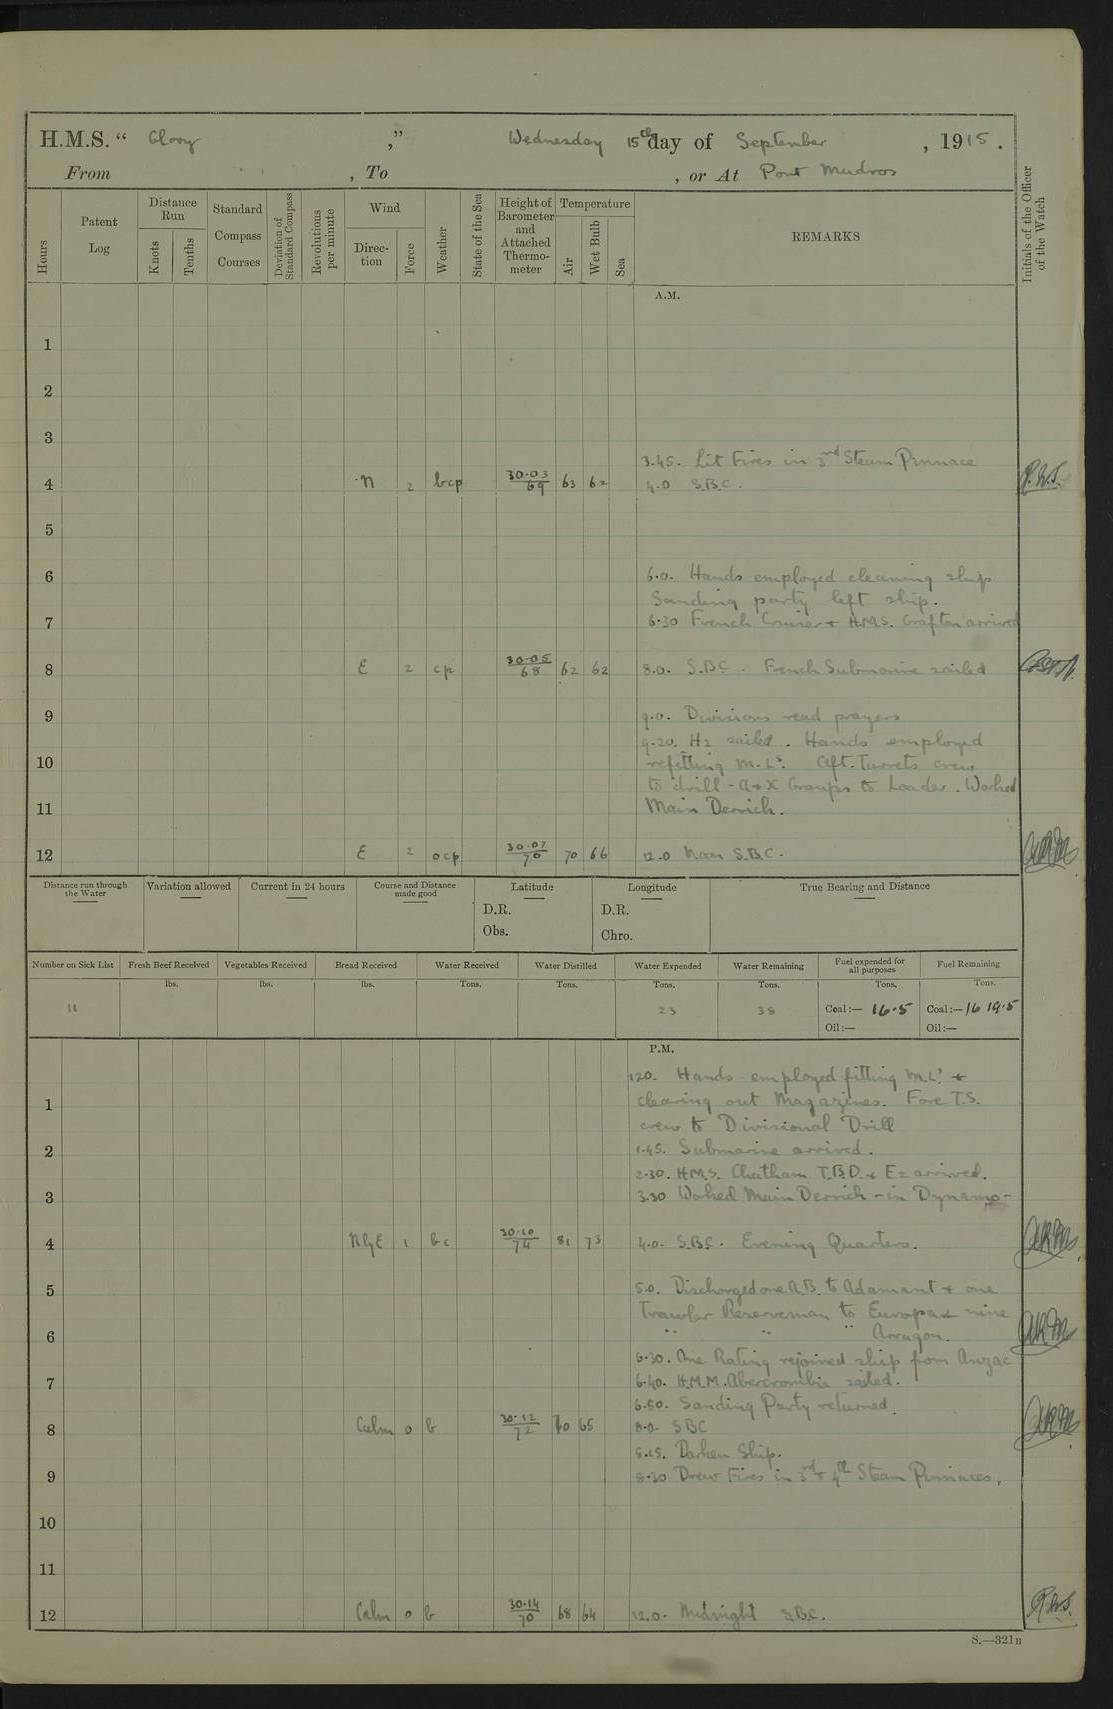 H.M.S. “ Glory ,” Wednesday 15th day of September , 1915 .
From , To , or At Port Mudros
Hours
Patent Log
Distance Run
Knots
Tenths
Standard Compass Courses
Deviation of Standard Compass
Revolutions per minute
Wind
Direction
Force
Weather
State of the Sea
Height of Barometer and Attached Thermometer
Temperature
Air
Wet Bulb
Sea
REMARKS
Initials of the Officer of the Watch
A.M.
1
2
3
3.45. Lit Fires in 3rd Steam Pinnace
4 N 2 bcp 30.03/69 63 62 4.0 S.B.C. R.W.S.
5
6 6.0. Hands employed cleaning ship
Sanding party left ship.
7 6.30 French Cruiser + H.M.S. Grafton arrived
8 E 2 cp 30.05/68 62 62 8.0. S.B.C. French Submarine sailed
9 9.0. Divisions read prayers
9.20. H2 sailed. Hands employed
10 refitting M.Ls. Aft. Turrets crew
to drill - A+X Groups to Loader. Worked
11 Main Derrick.
12 E 2 ocp 30.07/70 70 66 12.0 Noon S.B.C.
Distance run through the Water
Variation allowed
Current in 24 hours
Course and Distance made good
Latitude
D.R.
Obs.
Longitude
D.R.
Chro.
True Bearing and Distance
Number on Sick List Fresh Beef Received Vegetables Received Bread Received Water Received Water Distilled Water Expended Water Remaining Fuel expended for all purposes Fuel Remaining
lbs. lbs. lbs. Tons. Tons. Tons. Tons. Tons. Tons.
11 23 38 Coal:— 16.5 Coal:— 1619.5
Oil:— Oil:—
P.M.
1.20. Hands employed fitting M.Ls +
1 clearing out Magazines. Fore T.S.
crew to Divisional Drill
2 1.45. Submarine arrived.
2.30. H.M.S. Chatham T.B.D. + E2 arrived.
3 3.30 Worked Main Derrick - in Dynamo -
4 NbyE 1 bc 30.10/74 81 73 4.0. S.B.C. Evening Quarters.
5 5.0. Discharged one A.B. to Adamant + one
Trawler Reserveman to Europa + nine
6 " " " Arragon.
6.30. One Rating rejoined ship from Anzac
7 6.40. H.M.M. Abercrombie sailed.
6.50. Sanding Party returned.
8 Calm 0 b 30.12/72 70 65 8.0. SBC
8.15. Darken Ship.
9 8.30 Drew Fires in 3rd + 4th Steam Pinnaces.
10
11
12 Calm 0 b 30.14/70 68 64 12.0. Midnight S.B.C. R.W.S.
S.—321B